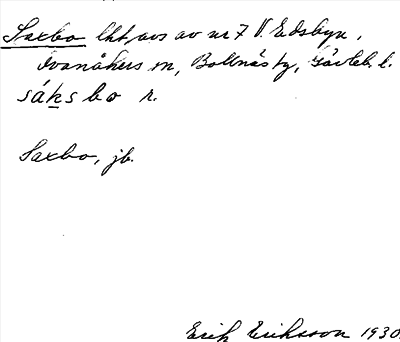 Saxbo lht, avs av nr 7 V. Edsbyn,
Ovanåkers sn, Bollnäs tg, Gävleb. l.
sáksbo r.
Saxbo, jb.
Erik Eriksson 1930.